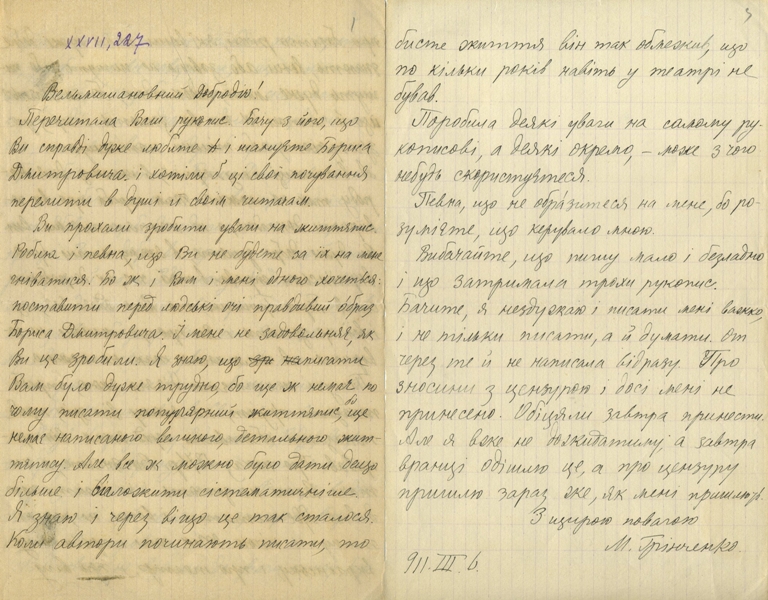 1
XXVII, 227
Вельмишановний Добродію!
Перечитала Ваш рукопис. Бачу з його, що
Ви справді дуже любите й і шануєте Бориса
Дмитровича і хотіли б ці свої почування
перелити в душі й своїм читачам.
Ви прохали зробити уваги на життєпис.
Роблю і певна, що Ви не будете за їх на мене
гніватися. Бо ж і Вам і мені одного хочеться:
поставити перед людські очі правдивий образ
Бориса Дмитровича. І мене не задовольняє, як
Ви це зробили. Я знаю, що написати
Вам було дуже трудно, бо ще ж немає по
чому писати популярний життєпис, бо ще
немає написаного великого, детального жит-
тєпису. Але все ж можно було дати дещо
більше і виложити сістематичніше.
Я знаю і через віщо це так сталося.
Коли автори починають писати, то
3
бисте життя він так обмежив, що
по кільки років навіть у театрі не
бував.
Поробила деякі уваги на самому ру-
кописові, а деякі окремо, – може з чого
небудь скористуєтеся.
Певна, що не образитеся на мене, бо ро-
зумієте, що керувало мною.
Вибачайте, що пишу мало і безладно
і що затримала трохи рукопис.
Бачите, я нездужаю і писати мені важко,
і не тільки писати, а й думати. От
через те й не написала відразу. Про
зносини з цензурою і досі мені не
принесено. Обіцяли завтра принести.
Але я вже не дожидатиму, а завтра
вранці одішлю це, а про цензуру
пришлю зараз же, як мені пришлють.
З щирою повагою
М. Грінченко.
911. III. 6.